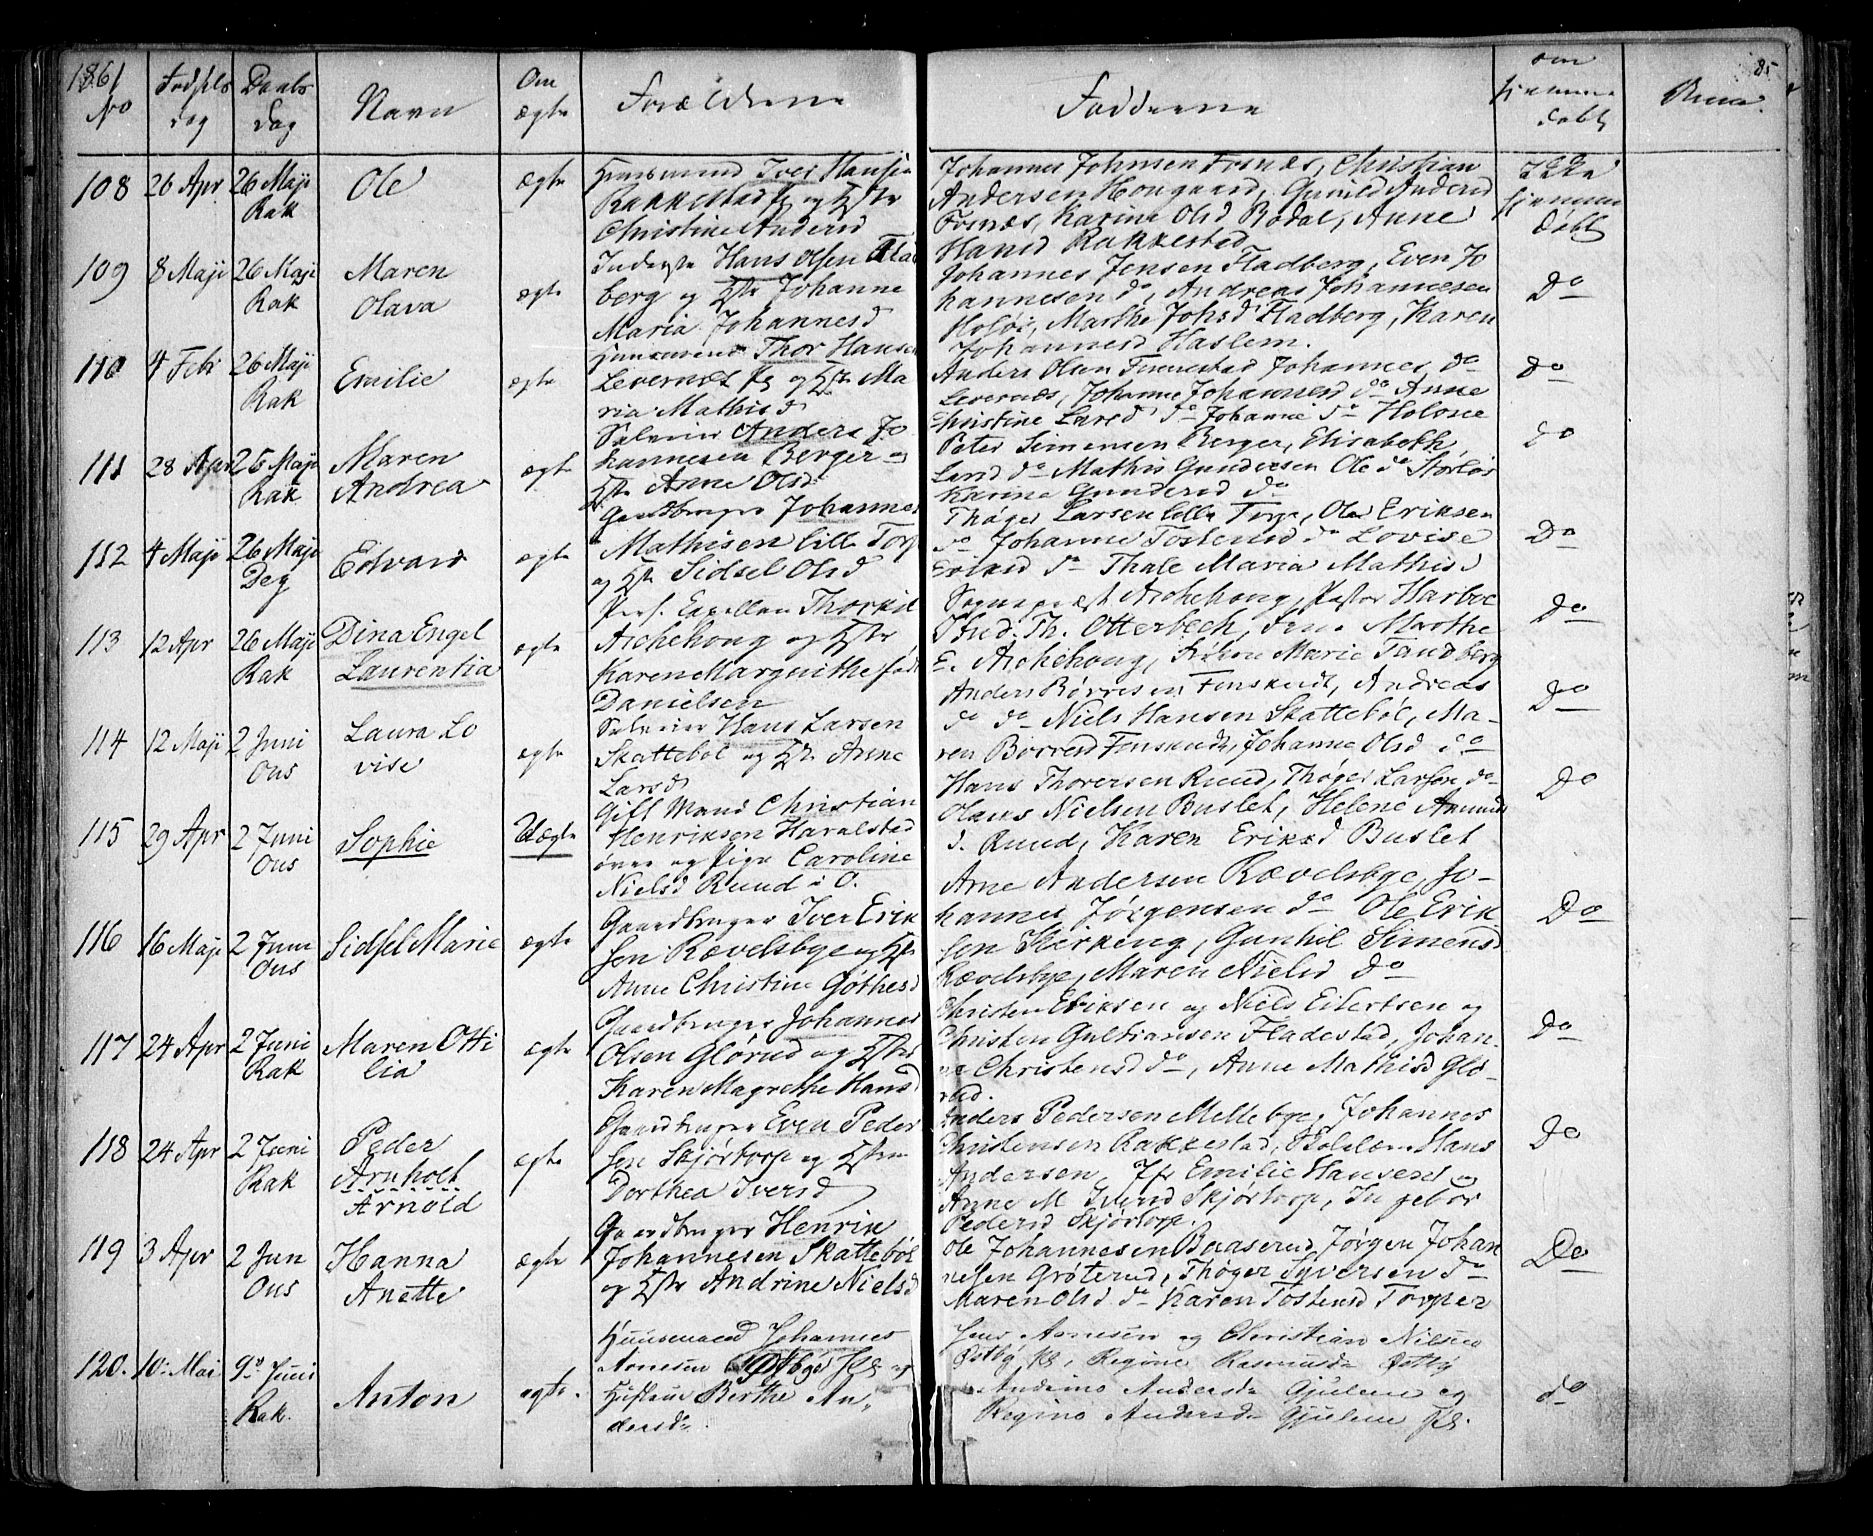 1861
No
Fødsels
dag
Daabs
dag
Navn
Om
ægte
Forældrene
Fadderne
om
hjemme
døbt
85
108 26 Apr 26 Maji
Rak
Ole
ægte
Huusmand Iver Hansen
Rakkestad og Hstr
Christine Andersd
Johannes Johnsen Fosnæs, Christian
Andersen Hougaard, Gunild Andersd
Fosnæs, Karine Olsd Bødal, Anne
Hansd Rakkestad
Ikke
hjemme
døbt
109 8 Maji 26 Maji
Rak
Maren
Olava
ægte
Inderste Hans Olsen Flad
berg og Hstr Johanne
Maria Johannesd
Johannes Jensen Fladberg, Even Jo
hannesen do, Andreas Johannesen
Holøs, Marthe Johsd Fladberg, Karen
Johannesd Haslem.
Do
110 4 Febr 26 Maji
Rak
Emilie
ægte
Huusmand Thor Hansen
Levernæs og Hstr Ma
ria Mathisd
Anders Olsen Finnestad Johannes do
Levernæs, Johanne Johannesd do Anne
Christine Larsd do Johanne do Holøse
Do
111 28 Apr 26 Maji
Rak
Maren
Andrea
ægte
Selveier Anders Jo
hannesen Berger og
Hstr Anne Olsd
Peter Simensen Berger, Elisabeth
Larsd do Mathis Gundersen Ole do Storløs
Karine Gundersd do
do
112 4 Maji 26 Maji
Deg
Edvard
ægte
Gaardbruger Johannes
Mathisen lille Torp
og Hstr Sidsel Olsd
Thøger Larsen lille Torp, Ole Eriksen
do Johanne Tostensd do Lovise
Eriksd do Thale Maria Mathisd
Do
113 12 Apr 26 Maji
Rak
Dina Engel
Laurentia
ægte
Pers. Capellan Thorkil
Aschehoug og Hstr
Karen Margrethe født
Danielsen
Sogneprest Aschehoug, Pastor Harboe
Stud. Th. Otterbech, Marthe
E. Aschehoug, Frøken Marie Tandberg
Do
114 12 Maji 2 Juni
Ous
Laura Lo
vise
ægte
Selveier Hans Larsen
Skattebøl og Hstr Anne
Larsd
Anders Børresen Finskudt, Andreas
do do Niels Hansen Skattebøl, Ma-
ren Børresd Finskudt, Johanne Olsd do
Do
115 29 Apr 2 Juni
Ous
Sophie
Uægte
Gift Mand Christian
Henriksen Haralstad
øvre og Pige Caroline
Nielsd Ruud i O.
Hans Thoresen Ruud, Thøger Larsen do
Olaus Nielsen Buslet, Helene Amund
d. Ruud, Karen Eriksd Buslet
Do
116 16 Maji 2 Juni
Ous
Sidsel Marie
ægte
Gaardbruger Iver Erik
sen Rævelsbye og Hstr
Anne Christine Gøthesd
Arne Andersen Rævelsbye, Jo-
hannes Jørgensen do Ole Erik
sen Kirkeng, Gunhil Simensd
Rævelsbye, Maren Nielsd do
Do
117 24 Apr 2 Juni
Rak
Maren Otti
lia
ægte
Gaardbruger Johannes
Olsen Glørud og Hstr
Karen Magrethe Hansd
Christen Eriksen og Niels Eilertsen og
Christen Gulbransen Fladestad, Johan-
ne Christensd do, Anne Mathisd Glø-
rud.
Do
118 24 Apr 2 Juni
Rak
Peder
Arnholt
Arnold
ægte
Gaardbruger Even Peder
sen Skjørtorp og Hstr
Dorthea Iversd
Anders Pedersen Mellebye, Johannes
Christensen Rakkestad, Skolelær. Hans
Andersen, Jfr Emilie Hansen og
Anne M Iversd Skjørtorp, Ingebor
Pedersd Skjørtorp.
Do
119 3 Apr 2 Jun
Ous
Hanna
Anette
ægte
Gaardbruger Henrik
Johannesen Skattebøl
og Hstr Andrine Nielsd
Ole Johannesen Baaserud, Jørgen Johan
nesen Grøterud, Thøger Syversen do
Maren Olsd do Karen Tostensd Torper
Do
120. 10. Mai 9de Juni
Rak.
Anton
ægte.
Huusmand Johannes
Arnesen Østbye og
Hustru Berthe An-
dersd.
Jens Arnesen og Christian Nilsen
Østby, Regine Rasmusd Østby
Andrine Andersd Gjulem og
Regine Andersd Gjulem
do